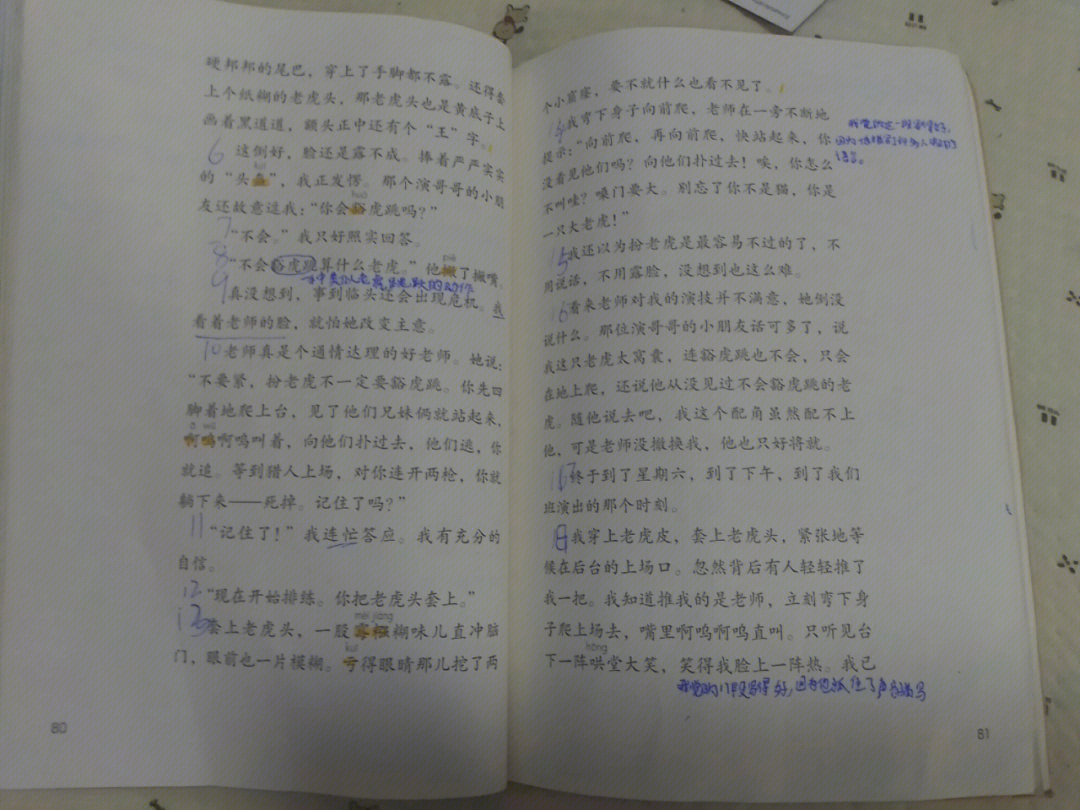 硬邦邦的尾巴，穿上了手脚都不露。还得套
上个纸糊的老虎头，那老虎头也是黄底子上
画着黑道道，额头正中还有个“王”字。
6 这倒好，脸还是露不成。捧着严严实实
kuī
的“头盔”，我正发愣。那个演哥哥的小朋
huō
友还故意逗我：“你会豁虎跳吗？”
7 “不会。”我只好照实回答。
piě
8 “不会豁虎跳算什么老虎。”他撇了撇嘴。
9 真没想到，事到临头还会出现危机。我
看着老师的脸，就怕她改变主意。
10 老师真是个通情达理的好老师。她说：
“不要紧，扮老虎不一定要豁虎跳。你先四
脚着地爬上台，见了他们兄妹俩就站起来，
ā wū
啊呜啊呜叫着，向他们扑过去，他们逃，你
就追。等到猎人上场，对你连开两枪，你就
躺下来——死掉。记住了吗？”
11 “记住了！”我连忙答应。我有充分的
自信。
12 “现在开始排练。你把老虎头套上。”
méi jiàng
13 套上老虎头，一股霉糨糊味儿直冲脑
kuī
门，眼前也一片模糊。亏得眼睛那儿挖了两
80
个小窟窿，要不就什么也看不见了。
14 我弯下身子向前爬，老师在一旁不断地
提示：“向前爬，再向前爬，快站起来，你
没看见他们吗？向他们扑过去！唉，你怎么
不叫哇？嗓门要大。别忘了你不是猫，你是
一只大老虎！”
15 我还以为扮老虎是最容易不过的了，不
用说话，不用露脸，没想到也这么难。
16 看来老师对我的演技并不满意，她倒没
说什么。那位演哥哥的小朋友话可多了，说
我这只老虎太窝囊，连豁虎跳也不会，只会
在地上爬，还说他从没见过不会豁虎跳的老
虎。随他说去吧，我这个配角虽然配不上
他，可是老师没撤换我，他也只好将就。
17 终于到了星期六，到了下午，到了我们
班演出的那个时刻。
18 我穿上老虎皮，套上老虎头，紧张地等
候在后台的上场口。忽然背后有人轻轻推了
我一把。我知道推我的是老师，立刻弯下身
子爬上场去，嘴里啊呜啊呜直叫。只听见台
hōng
下一阵哄堂大笑，笑得我脸上一阵热。我已
81